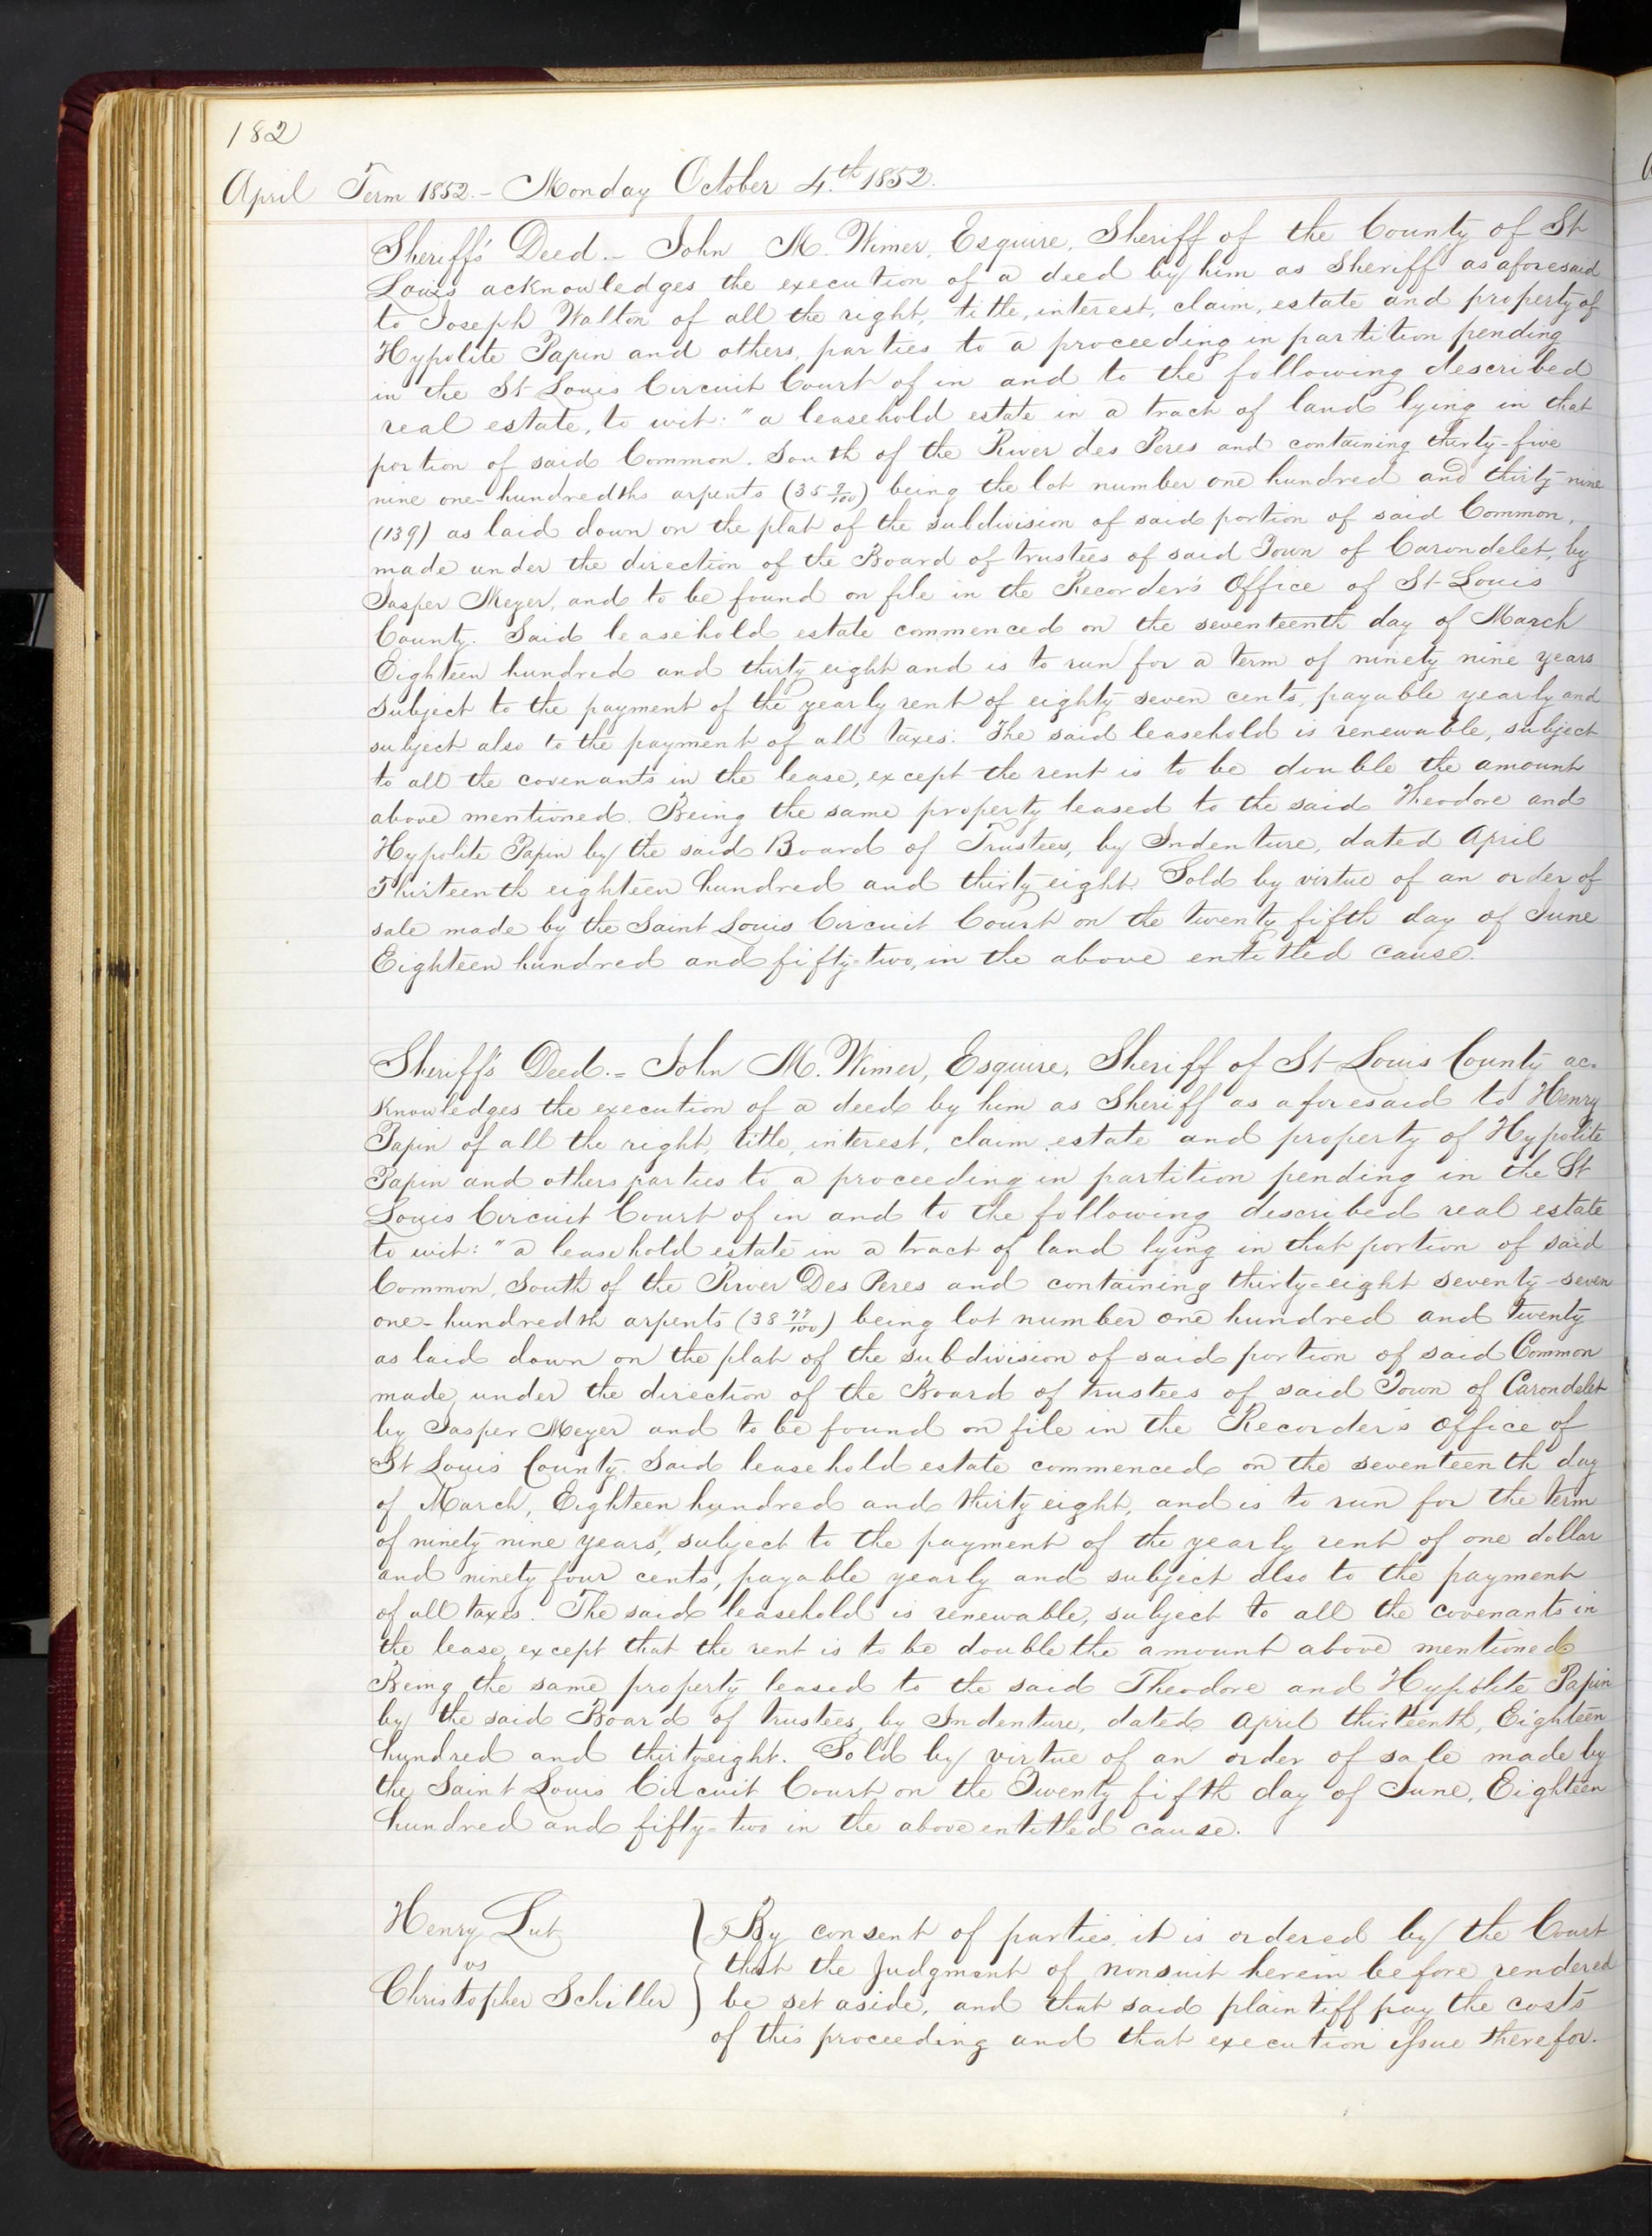 182
April Term 1852. - Monday October 4.th 1852.
Sheriff's Deed. - John M. Wimer, Esquire, Sheriff of the County of St
Louis acknowledges the execution of a deed by him as Sheriff as aforesaid
to Joseph Walton of all the right, title, interest, claim, estate and property of
Hypolite Papin and others, parties to a proceeding in partition pending
in the St Louis Circuit Court of in and to the following described
real estate, to wit: "a leasehold estate in a tract of land lying in that
portion of said Common. South of the River des Peres and containing thirty-five
nine one-hundredths arpents (35 9/100) being the lot number one hundred and thirty nine
(139) as laid down on the plat of the subdivision of said portion of said Common,
made under the direction of the Board of trustees of said Town of Carondelet, by
Jasper Meyer, and to be found on file in the Recorder's Office of St Louis
County. Said leasehold estate commenced on the seventeenth day of March
Eighteen hundred and thirty eight and is to run for a term of ninety nine years
subject to the payment of the yearly rent of eighty seven cents, payable yearly and
subject also to the payment of all taxes. The said leasehold is renewable, subject
to all the covenants in the lease, except the rent is to be double the amount
above mentioned. Being the same property leased to the said Theodore and
Hypolite Papin by the said Board of Trustees, by Indenture, dated April
Thirteenth eighteen hundred and thirty eight. Sold by virtue of an order of
sale made by the Saint Louis Circuit Court on the twenty fifth day of June
Eighteen hundred and fifty-two, in the above entitled cause.
Sheriff's Deed. - John M. Wimer, Esquire, Sheriff of St Louis County ac-
knowledges the execution of a deed by him as Sheriff as aforesaid to Henry
Papin of all the right, title, interest, claim, estate and property of Hypolite
Papin and others parties to a proceeding in partition pending in the St
Louis Circuit Court of in and to the following described real estate
to wit: "a leasehold estate in a tract of land lying in that portion of said
Common, South of the River Des Peres and containing thirty-eight seventy-seven
one-hundredth arpents (38 77/100) being lot number one hundred and twenty
as laid down on the plat of the subdivision of said portion of said Common
made under the direction of the Board of trustees of said Town of Carondelet
by Jasper Meyer and to be found on file in the Recorder's office of
St Louis County. Said leasehold estate commenced on the seventeenth day
of March, Eighteen hundred and thirty eight, and is to run for the term
of ninety nine years, subject to the payment of the yearly rent of one dollar
and ninety four cents, payable yearly and subject also to the payment
of all taxes. The said leasehold is renewable, subject to all the covenants in
the lease, except that the rent is to be double the amount above mentioned
Being the same property leased to the said Theodore and Hypolite Papin
by the said Board of trustees, by Indenture, dated April thirteenth, Eighteen
hundred and thirty eight. Sold by virtue of an order of sale made by
the Saint Louis Circuit Court on the Twenty fifth day of June, Eighteen
hundred and fifty-two in the above entitled cause.
Henry Lut
vs
Christopher Schiller
By consent of parties, it is ordered by the Court
that the Judgment of nonsuit herein before rendered
be set aside, and that said plaintiff pay the costs
of this proceeding and that execution issue therefor.